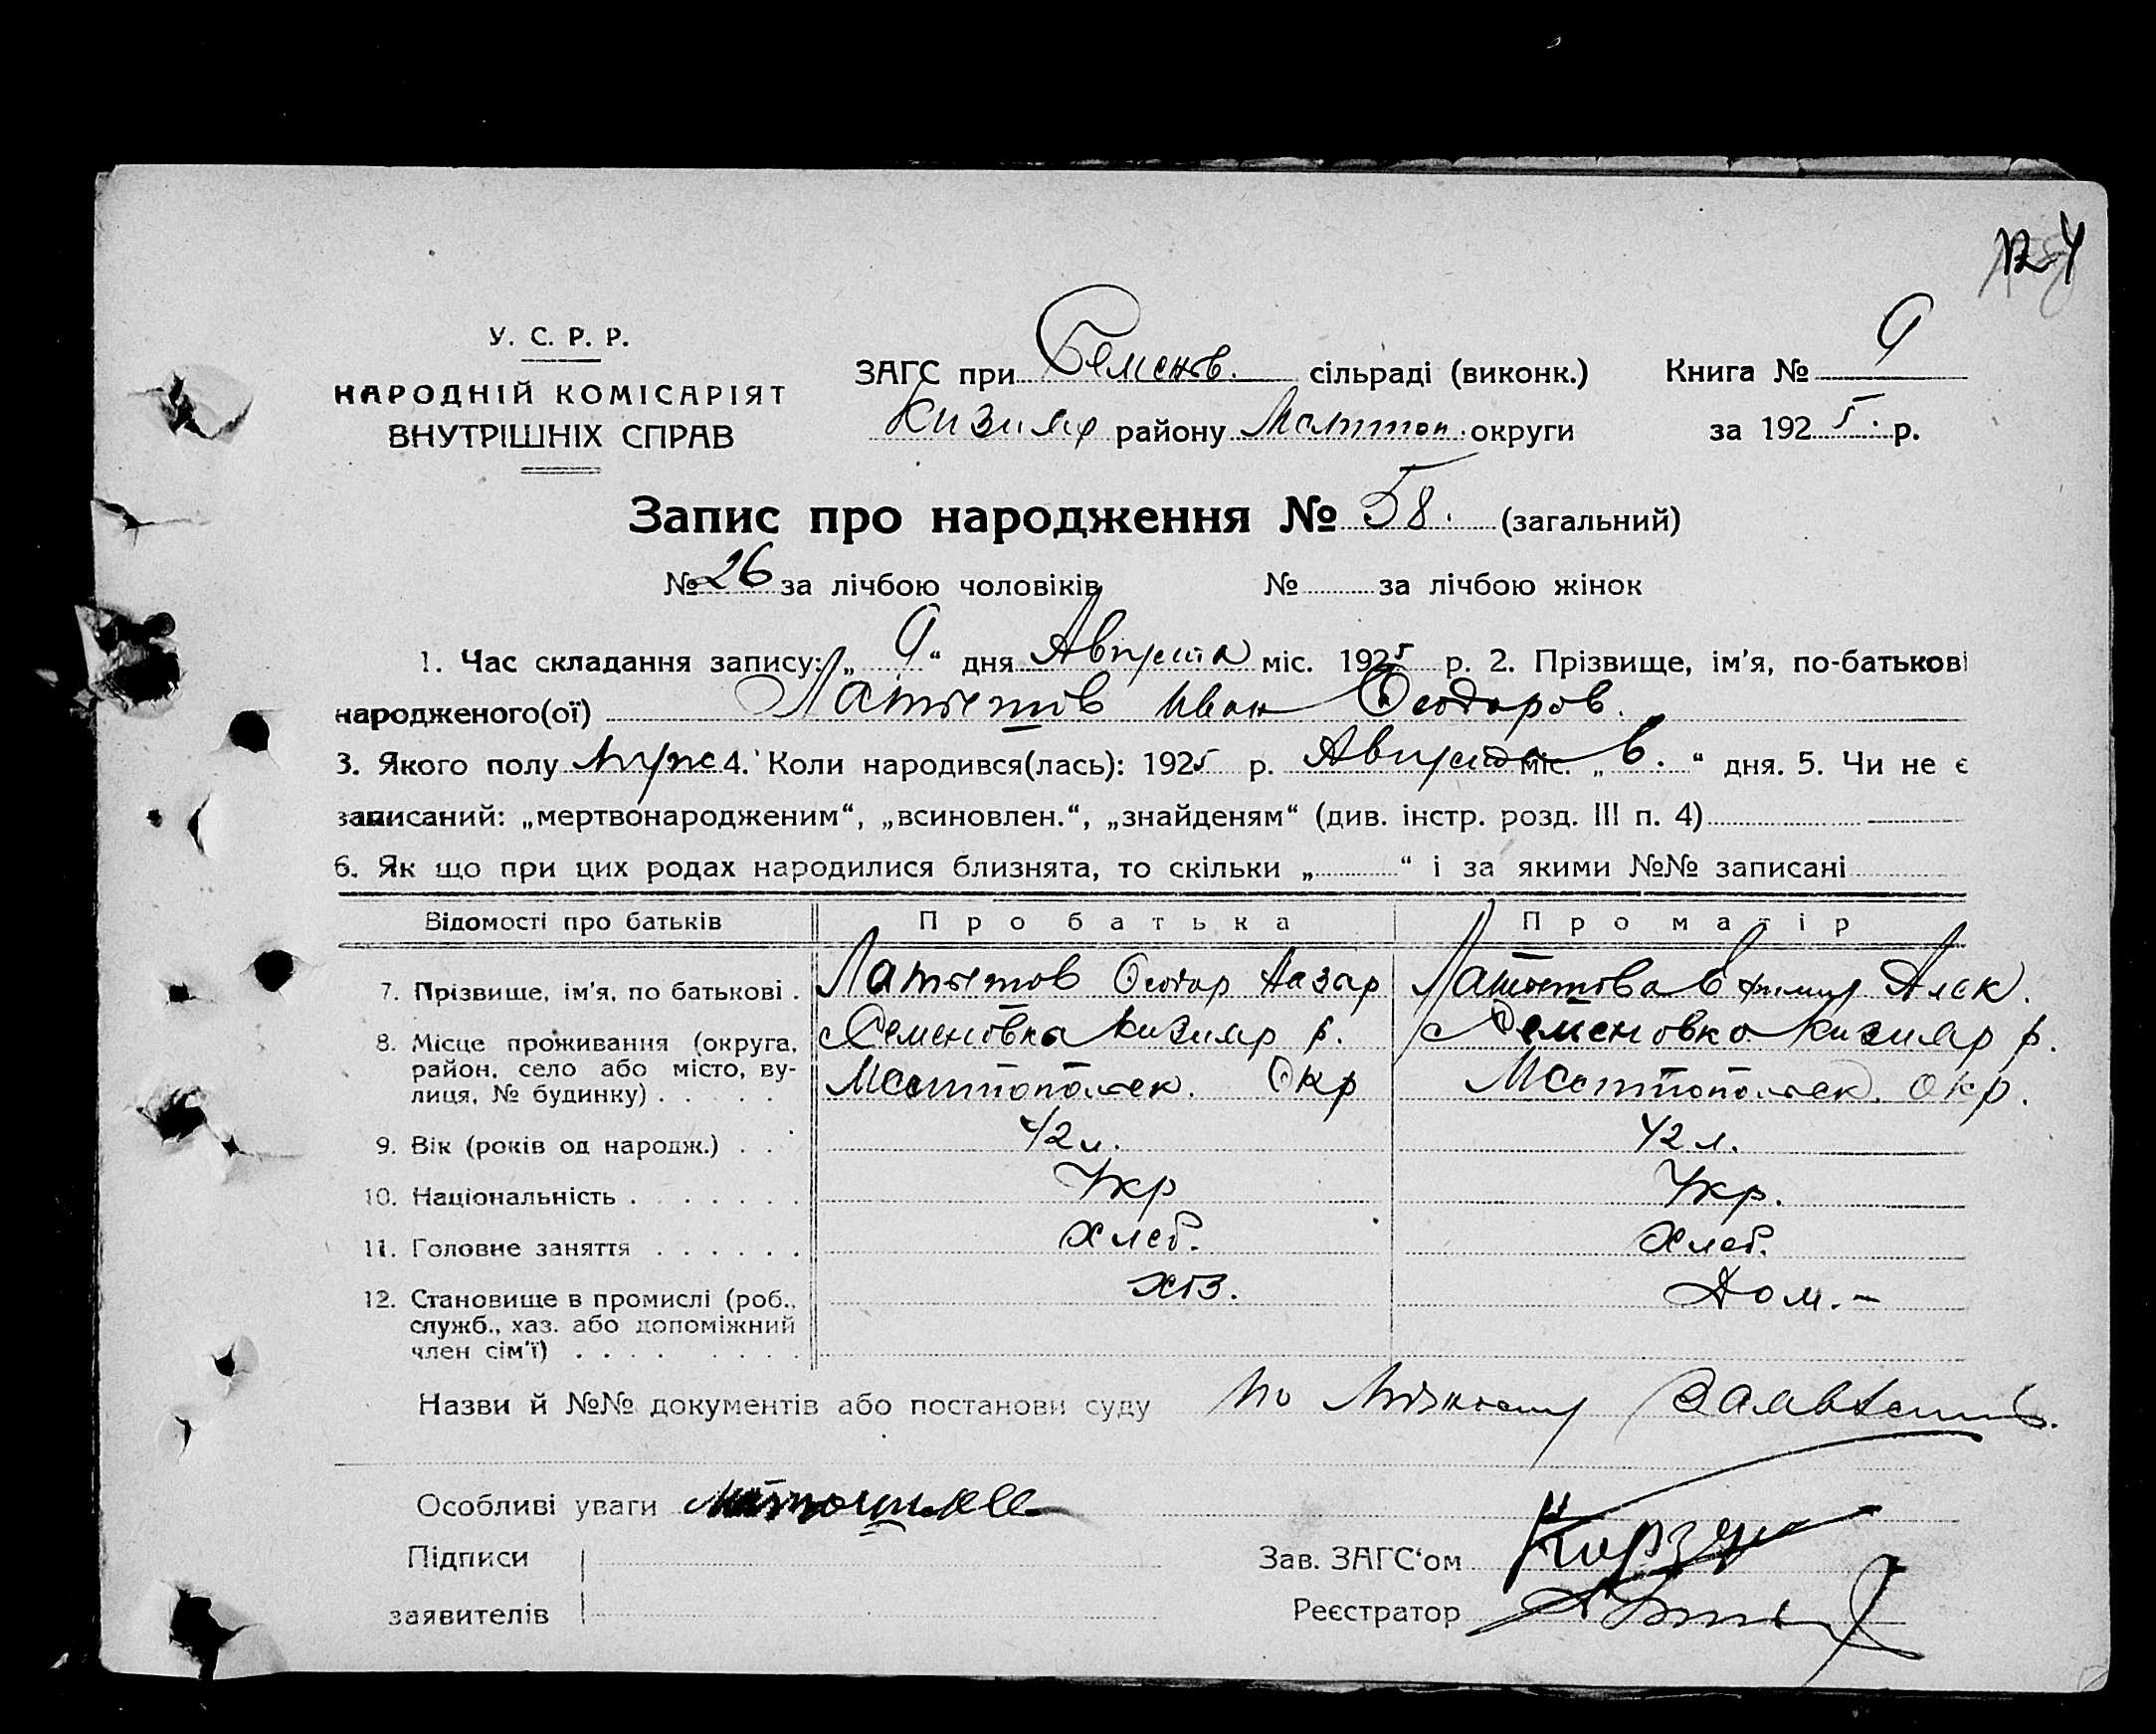 124
У. С. Р. Р.
НАРОДНІЙ КОМІСАРІЯТ
ВНУТРІШНІХ СПРАВ
ЗАГС при Семенов. сільраді (виконк.) Книга № 9
Кизияр району Мелитоп. округи за 1925. р.
Запис про народження № 58. (загальний)
№ 26 за лічбою чоловіків № за лічбою жінок
1. Час складання запису: „ 9 “ дня Августа міс. 1925 р. 2. Прізвище, ім'я, по-батькові
народженого(ої) Иван Феодоров.
3. Якого полу муж 4. Коли народився(лась): 1925 р. Августа міс. „ 6. “ дня. 5. Чи не є
записаний: „мертвонародженим“, „всиновлен.“, „знайденям“ (див. інстр. розд. III п. 4)
6. Як що при цих родах народилися близнята, то скільки „ “ і за якими №№ записані
Відомості про батьків Про батька Про матір
7. Прізвище, ім'я, по батькові . Феодор Назар Алек.
8. Місце проживання (округа, район, село або місто, вулиця, № будинку) . . . . . Семеновка Кизияр р. Семеновка Кизияр р.
Мелитопольск. Окр Мелитопольск. окр.
9. Вік (років од народж.) . . 42 л. 42 л.
10. Національність . . . . . . . Укр Укр.
11. Головне заняття . . . . . . Хлеб. Хлеб.
12. Становище в промислі (роб., служб., хаз. або допоміжний член сім'ї) . . . . . . . . Дом. –
Назви й №№ документів або постанови суду По
Особливі уваги
Підписи Зав. ЗАГС'ом
заявителів Реєстратор